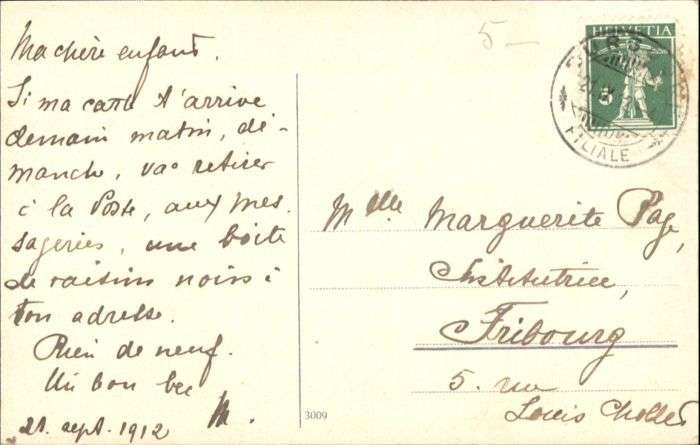 Ma chère enfant.
Si ma carte t'arrive
demain matin, di-
manche, va retirer
à la Poste, aux mes-
sageries, une boîte
de raisins noirs à
ton adresse.
Rien de neuf.
Un bon bec
M.
21. sept. 1912
5 —
HELVETIA
5
FILIALE
Mlle Marguerite Page,
Institutrice,
Fribourg
5. rue
Louis Chollet
3009